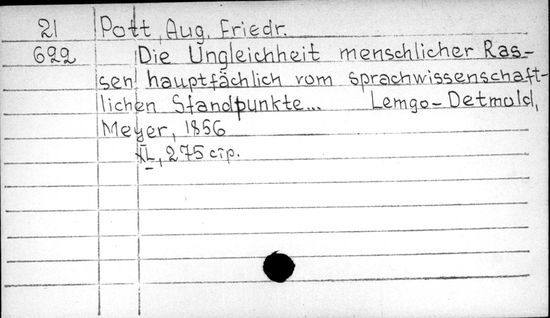 21 Pott, Aug. Friedr.
622 Die Ungleichheit menschlicher Ras-
sen hauptfächlich vom sprachwissenschaft-
lichen Standpunkte... Lemgo-Detmold,
Meyer, 1856
XL, 275 стр.